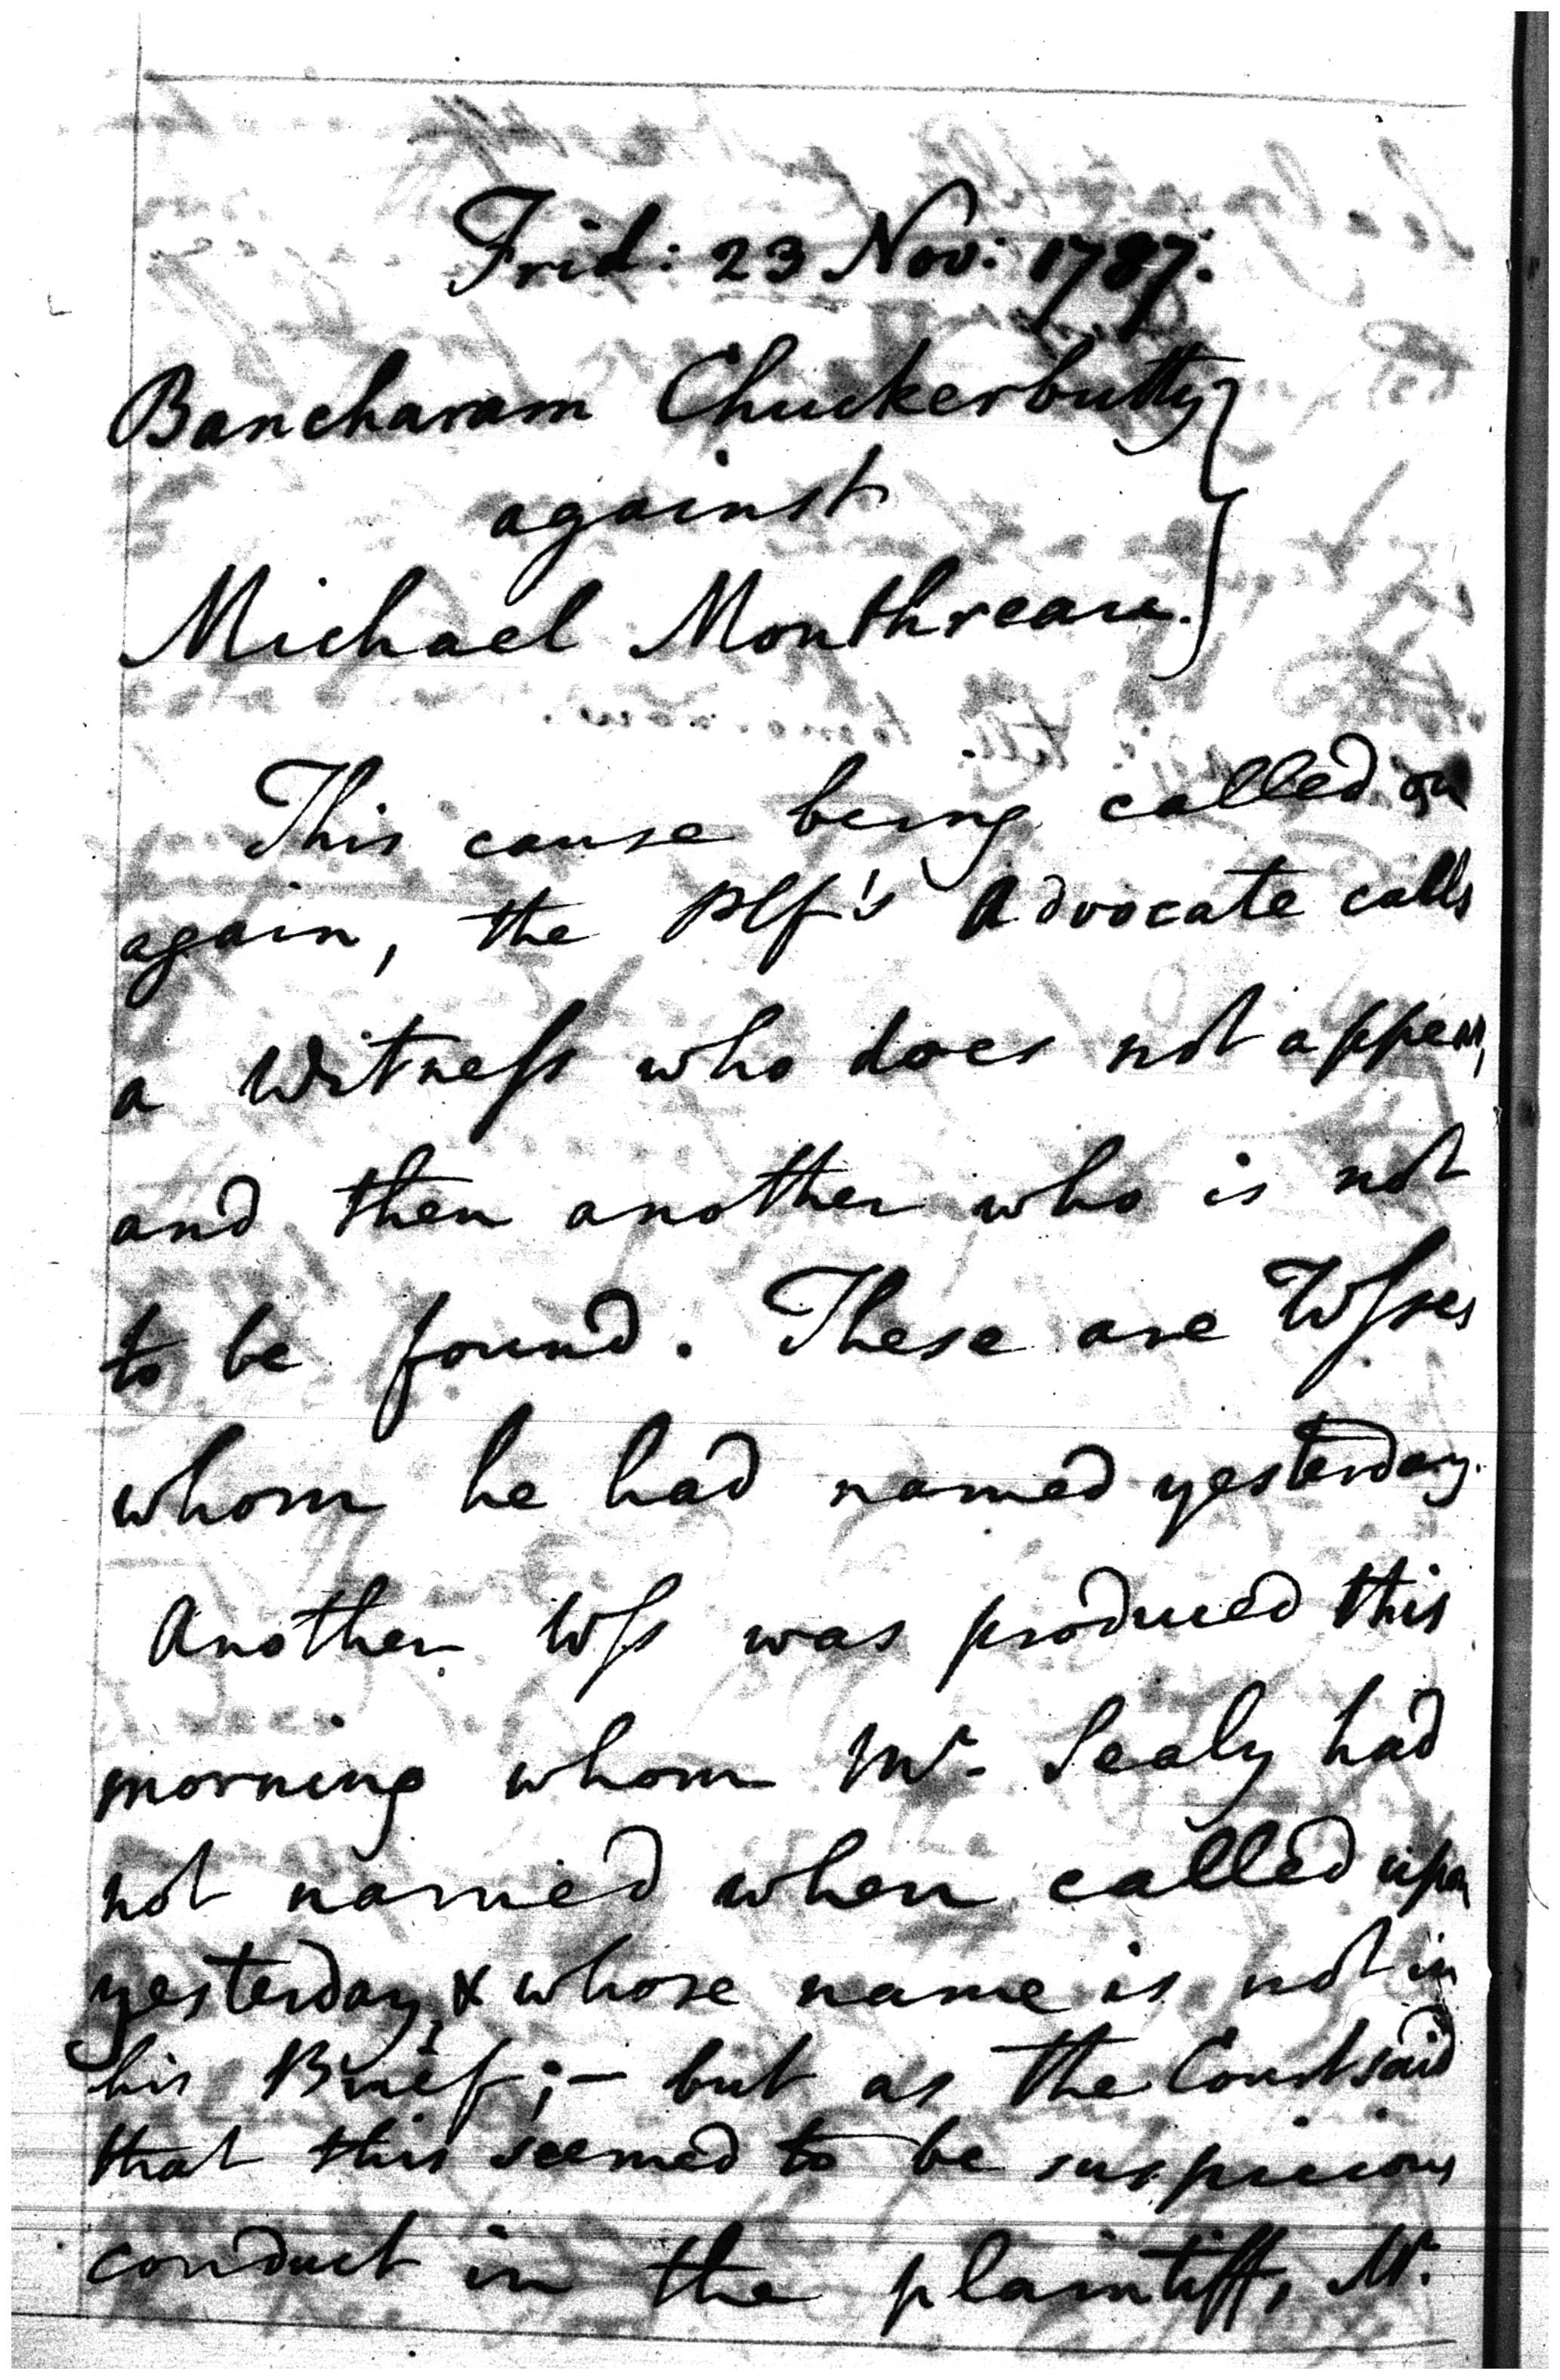 Frid: 23 Nov: 1787.
Bancharam Chuckerbutty
against
Michael Monthreare.
This cause being called on
again, the Plf's Advocate calls
a Witness who does not appear,
and then another who is not
to be found. These are Wsses
whom he had named yesterday.
Another Wss was produced this
morning whom Mr. Sealy had
not named when called upon
yesterday, & whose name is not in
his Brief; - but as the Court said
that this seemed to be suspicious
conduct in the plaintiff, Mr.